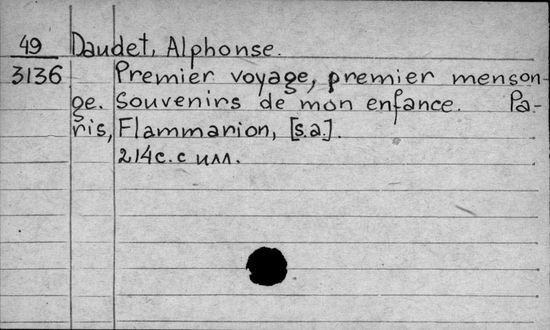 49 Daudet, Alphonse.
3136 Premier voyage, premier menson-
ge. Souvenirs de mon enfance. Pa-
ris, Flammarion, [s.a.].
214с. с илл.